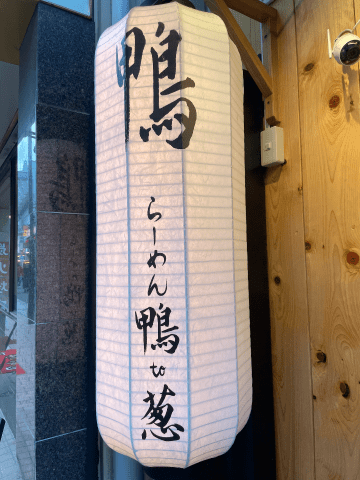 鴨
らーめん鴨to葱